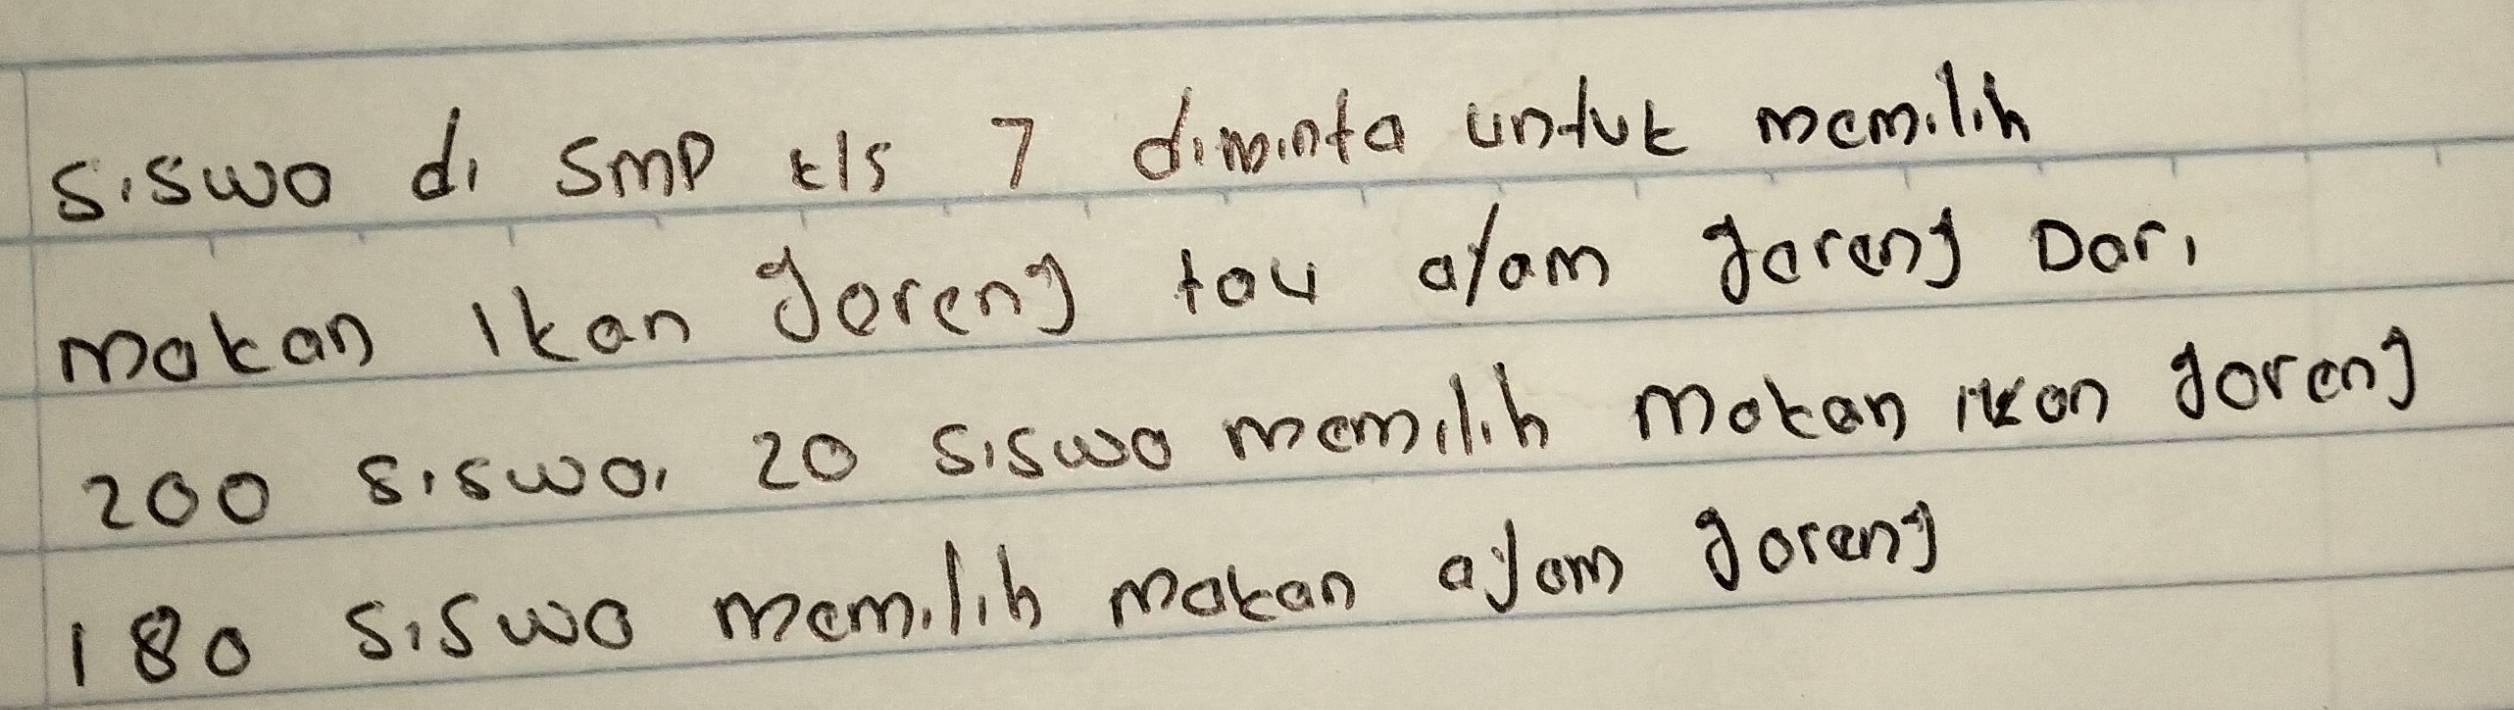 siswa di SMP kls 7 diminta untuk memilih
makan ikan goreng tau ayam goreng Dari
200 siswa, 20 siswa memilih makan ikan goreng
180 siswa memilih makan ayam goreng